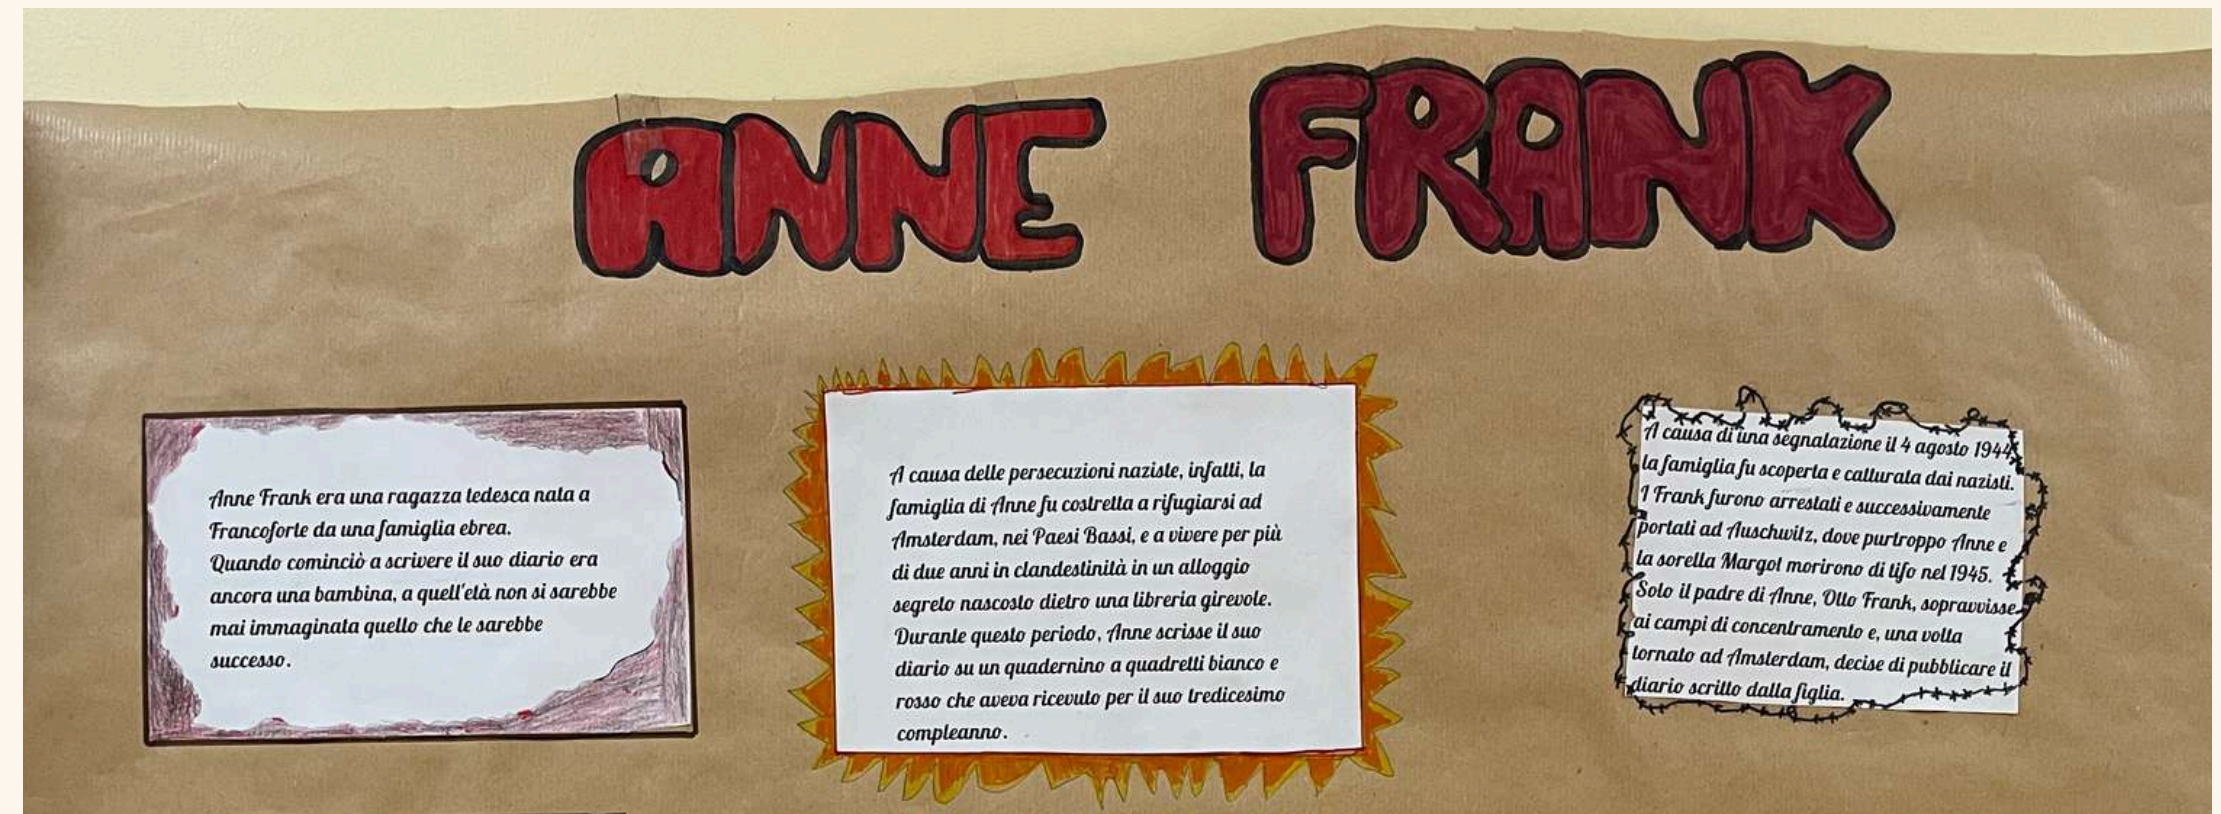 ANNE FRANK
Anne Frank era una ragazza tedesca nata a
Francoforte da una famiglia ebrea.
Quando cominciò a scrivere il suo diario era
ancora una bambina, a quell'età non si sarebbe
mai immaginata quello che le sarebbe
successo.
A causa delle persecuzioni naziste, infatti, la
famiglia di Anne fu costretta a rifugiarsi ad
Amsterdam, nei Paesi Bassi, e a vivere per più
di due anni in clandestinità in un alloggio
segreto nascosto dietro una libreria girevole.
Durante questo periodo, Anne scrisse il suo
diario su un quadernino a quadretti bianco e
rosso che aveva ricevuto per il suo tredicesimo
compleanno.
A causa di una segnalazione il 4 agosto 1944
la famiglia fu scoperta e catturata dai nazisti.
I Frank furono arrestati e successivamente
portati ad Auschwitz, dove purtroppo Anne e
la sorella Margot morirono di tifo nel 1945.
Solo il padre di Anne, Otto Frank, sopravvisse
ai campi di concentramento e, una volta
tornato ad Amsterdam, decise di pubblicare il
diario scritto dalla figlia.